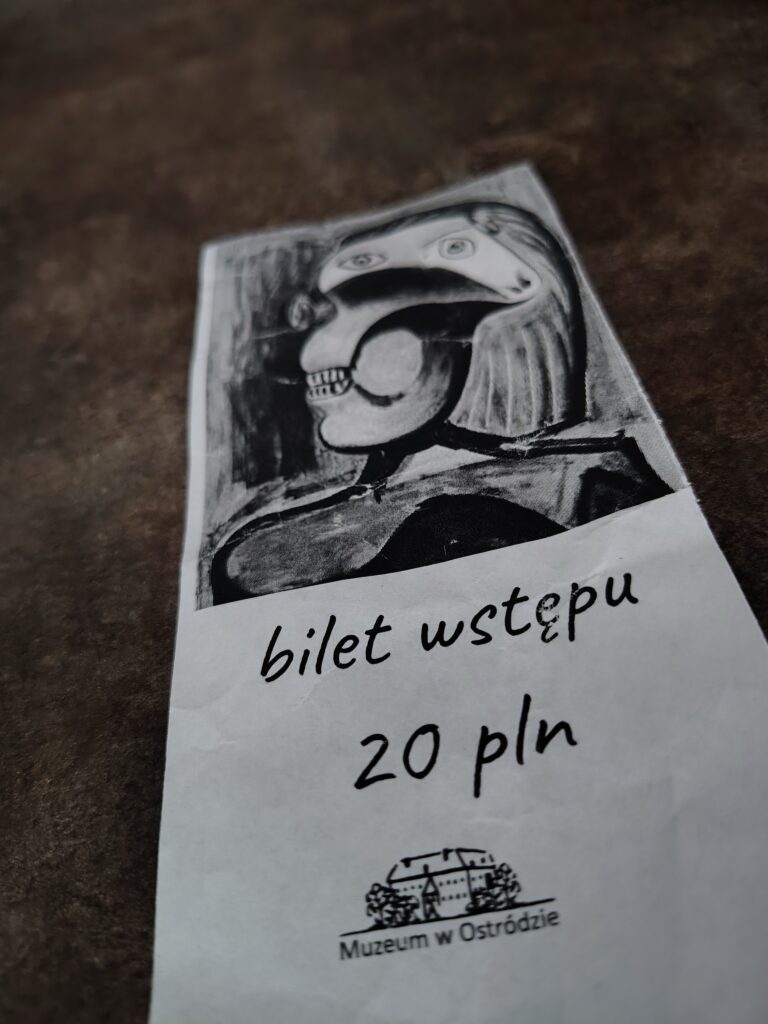 bilet wstępu
20 pln
Muzeum w Ostródzie